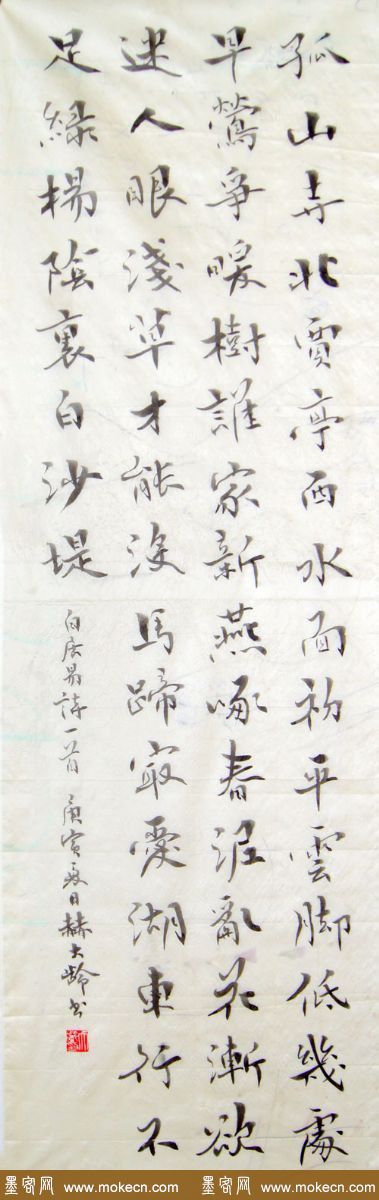 孤山寺北賈亭西水面初平雲脚低幾處
早鶯爭暖樹誰家新燕啄春泥亂花漸欲
迷人眼淺草才能沒馬蹄㝡愛湖東行不
足綠楊陰裏白沙堤
白居易詩一首 庚寅夏日赫大齡书
墨客网 www.mokecn.com 墨客网 www.mokecn.com